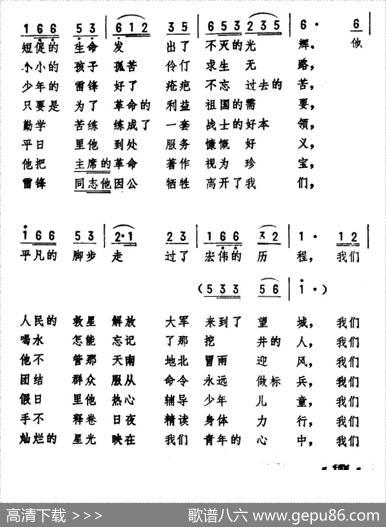 1 6 6 5 3 | 6 1 2 3 5 | 6 5 3 2 3 5 | 6 · 6 |
短促的 生命 发 出了 不灭的光 辉。 他
小小的 孩子 孤苦 伶仃 求生 无 路,
少年的 雷锋 好了 疮疤 不忘 过去的 苦,
只要是 为了 革命的 利益 祖国的需 要,
勤学 苦练 练成了 一套 战士的好本 领,
平日 里他 到处 服务 慷慨 好 义,
他把 主席的革命 著作 视为 珍 宝,
雷锋 同志他因公 牺牲 离开了我 们,
1 6 6 5 3 | 2 · 1 2 3 | 1 6 6 3 2 | 1 · 1 2 |
平凡的 脚步 走 过了 宏伟的 历 程, 我们
( 5 3 3 5 6 | 1 · )
人民的 救星 解放 大军 来到了 望 城, 我们
喝水 怎能 忘记 了那 挖 井的 人, 我们
他不 管那 天南 地北 冒雨 迎 风, 我们
团结 群众 服从 命令 永远 做标 兵, 我们
假日 里他 热心 辅导 少年 儿 童, 我们
手不 释卷 日夜 精读 身体 力 行, 我们
灿烂的 星光 映在 我们 青年的 心 中, 我们
高清下载 >>>
歌谱八六 www.gepu86.com